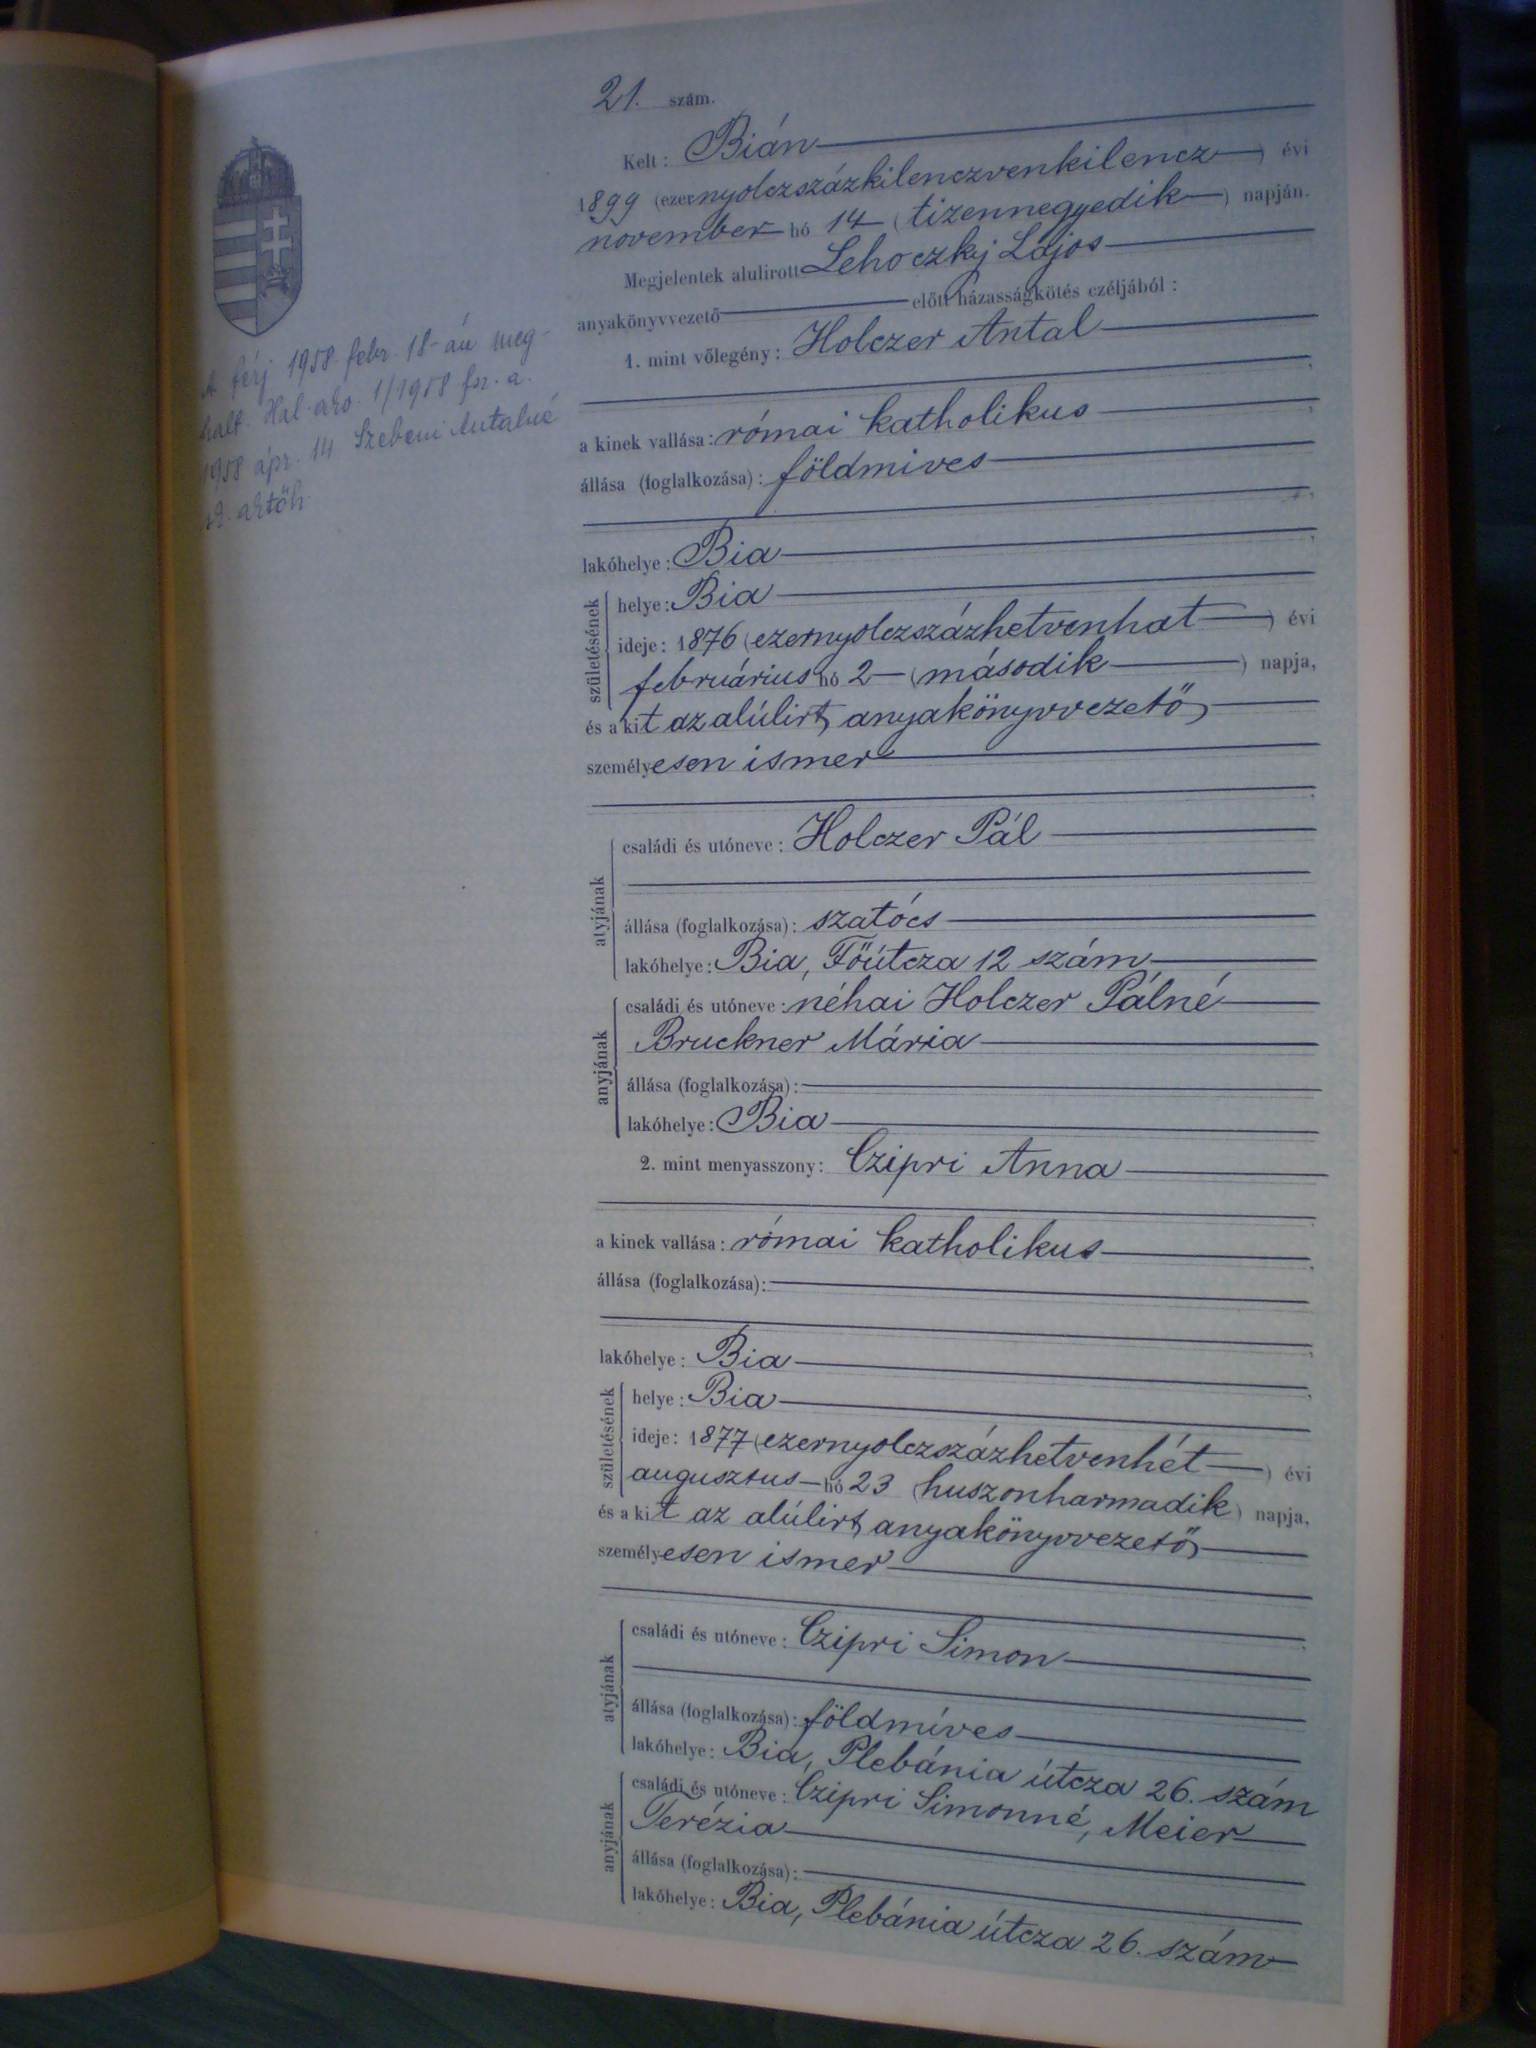 21. szám.
Kelt: Bián
1899 (ezernyolczszázkilenczvenkilencz) évi
november hó 14 (tizennegyedik) napján.
Megjelentek alulirott Lehoczky Lajos
anyakönyvvezető előtt házasságkötés czéljából:
1. mint vőlegény: Holczer Antal
a kinek vallása: római katholikus
állása (foglalkozása): földmives
lakóhelye: Bia
születésének
helye: Bia
ideje: 1876 (ezernyolczszázhetvenhat) évi
februárius hó 2 (második) napja,
és a kit az alúlirt anyakönyvvezető
személyesen ismer
atyjának
családi és utóneve: Holczer Pál
állása (foglalkozása): szatócs
lakóhelye: Bia, Főútcza 12 szám
anyjának
családi és utóneve: néhai Holczer Pálné
Bruckner Mária
állása (foglalkozása):
lakóhelye: Bia
2. mint menyasszony: Czipri Anna
a kinek vallása: római katholikus
állása (foglalkozása):
lakóhelye: Bia
születésének
helye: Bia
ideje: 1877 (ezernyolczszázhetvenhét) évi
augusztus hó 23 (huszonharmadik) napja,
és a kit az alúlirt anyakönyvvezető
személyesen ismer
atyjának
családi és utóneve: Czipri Simon
állása (foglalkozása): földmíves
lakóhelye: Bia, Plebánia útcza 26. szám
anyjának
családi és utóneve: Czipri Simonné, Meier
Terézia
állása (foglalkozása):
lakóhelye: Bia, Plebánia útcza 26. szám
A férj 1958. febr. 18-án meg-
halt. Hal. 1/1958
1958 ápr. 14 Szebeni Antalné